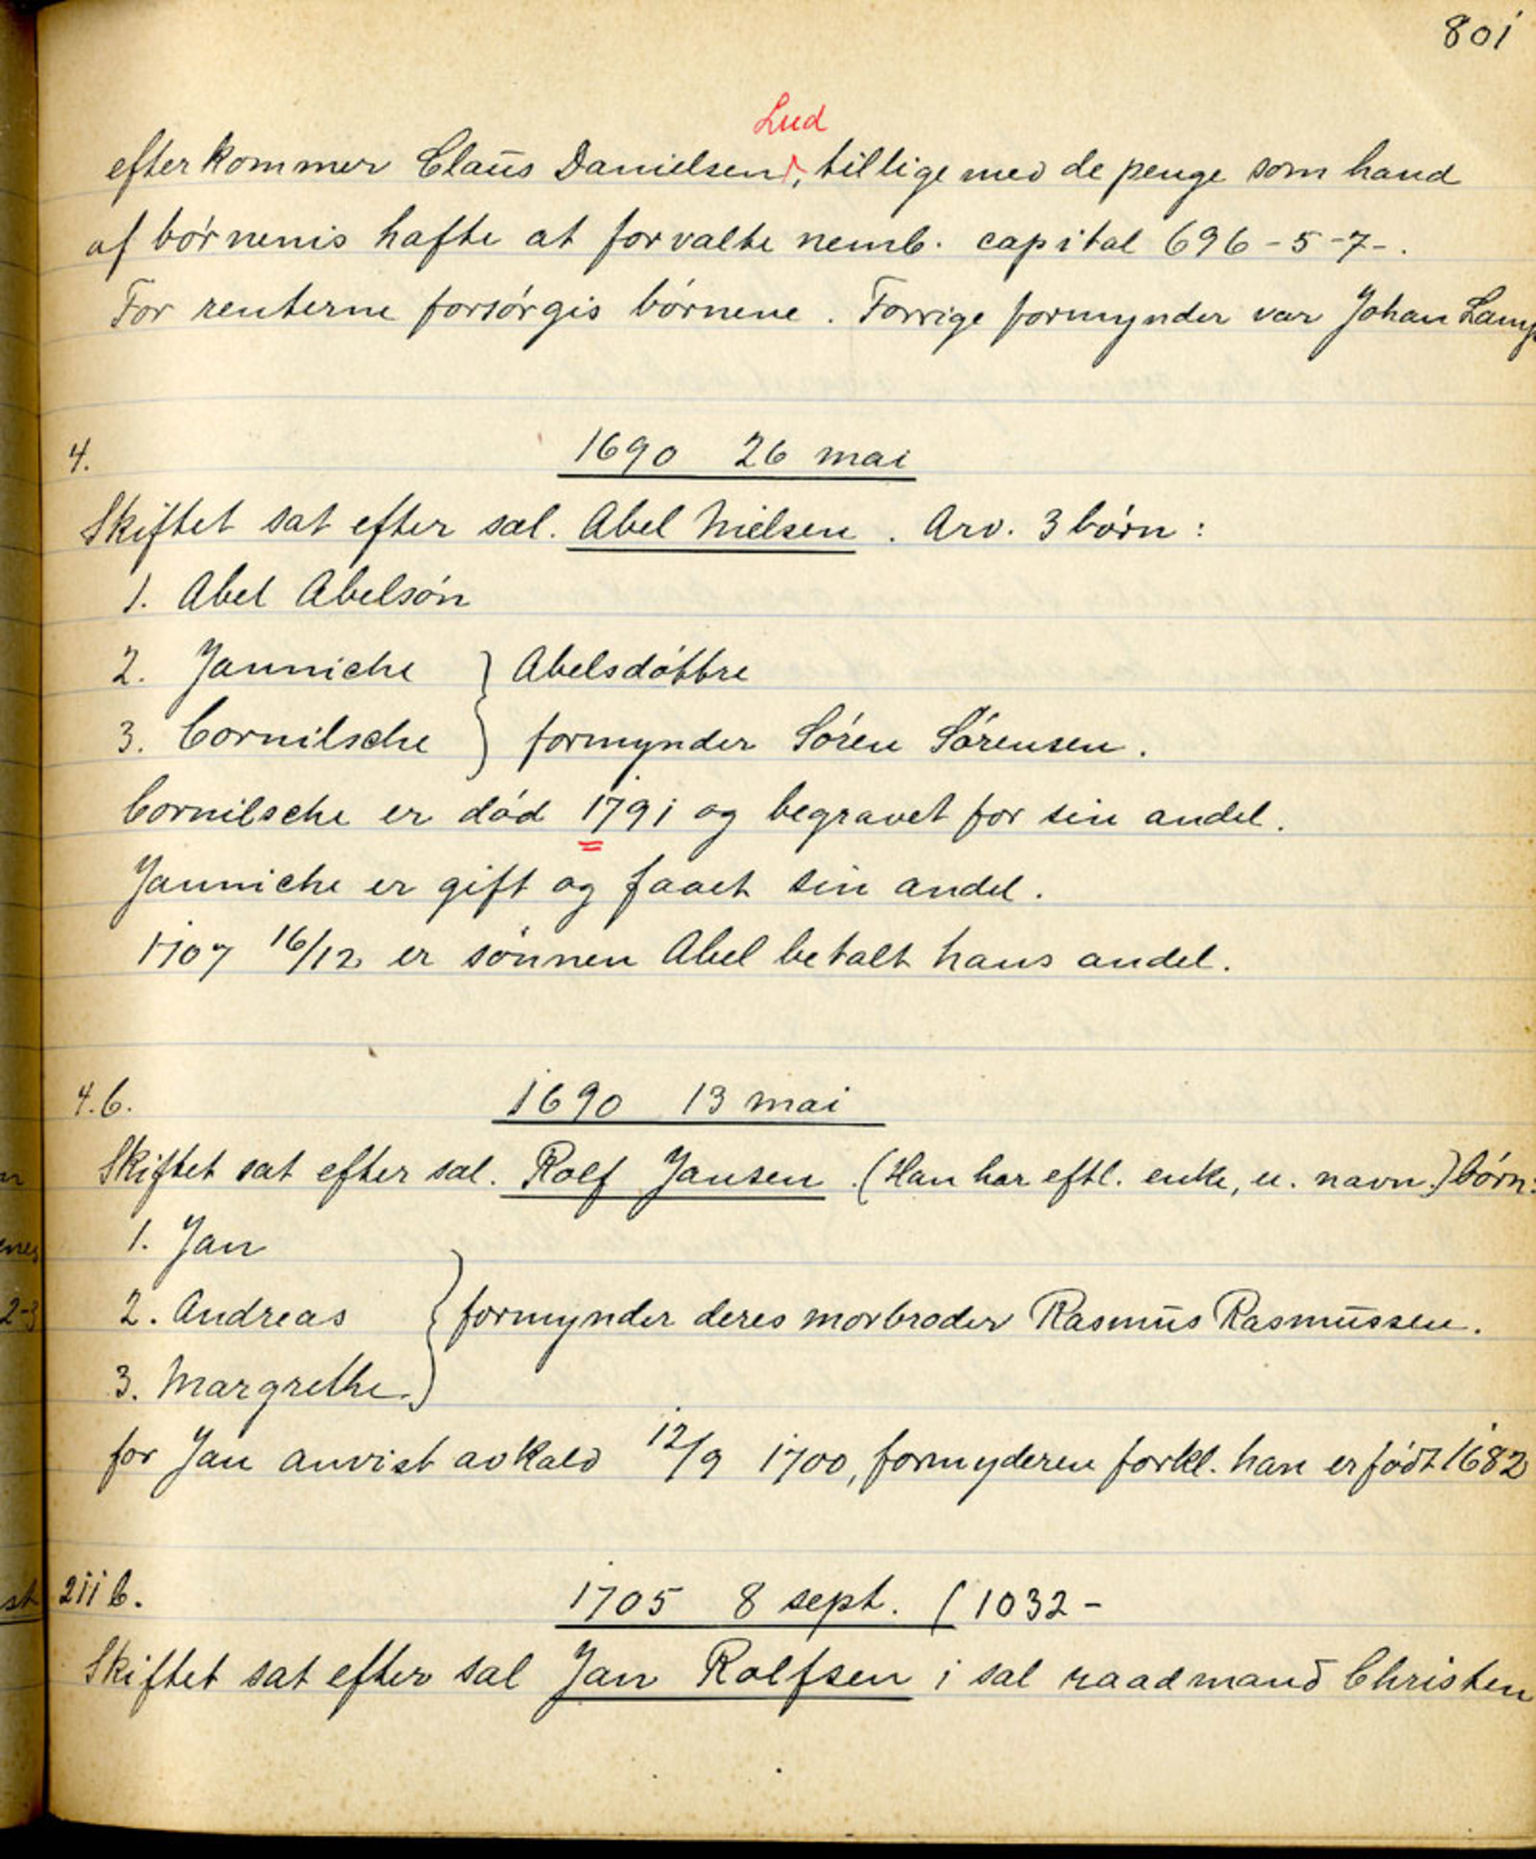 801
Lud
efterkommer Claus Danielsen, tillige med de penge som hand
af børnenis hafte at forvalte nemb. capital 696-5-7-.
For renterne forsørgis børnene. Forrige formynder var Johan Lamp
4.
1690 26 mai
Skiftet sat efter sal. Abel Nielsen. Arv. 3 børn:
1. Abel Abelsøn
2. Janniche } Abelsdøttre
3. Cornilsche } formynder Søren Sørensen.
Cornilsche er død 1791 og begravet for sin andel.
Janniche er gift og faaet sin andel.
1707 16/12 er sønnen Abel betalt hans andel.
4.b.
1690 13 mai
Skiftet sat efter sal. Rolf Jansen. (Han har eftl. enke, u. navn.) børn:
1. Jan
2. Andreas } formynder deres morbroder Rasmus Rasmussen.
3. Margrethe.
for Jan anvist avkald 12/9 1700, formyderen forkl. han er født 1682
211 b.
1705 8 sept. (1032-
Skiftet sat efter sal Jan Rolfsen i sal raadmand Christen